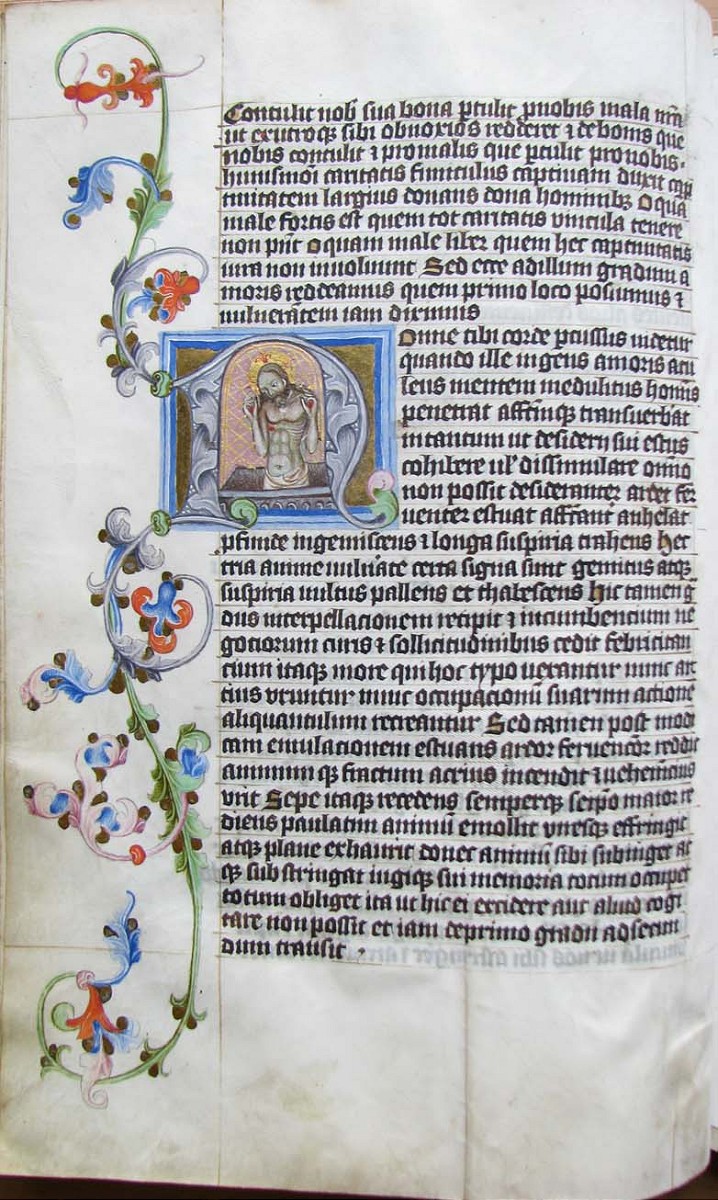 Contulit nob̄ sua bona ꝑtulit ꝓnobis mala nr̄a
ut exutroqꝫ sibi obnoxios redderet ⁊ debonis que
nobis contulit ⁊ ꝓmalis que ꝑtulit pronobis.
huiusmōi caritatis funiculus captiuam duxit cap
tiuitatem largius donans dona hominibꝫ O quā
male fortis est quem tot caritatis vincula tenere
non pn̄t o quam male liber quem hec captiuitatis
iura non inuoluunt Sed ecce adillum gradum a
moris redeamus quem primo loco posuimus ⁊
uulnerātem iam diximus
Nonne tibi corde ꝑcussus uidetur
quando ille ingens amoris acu
leus mentem medullitus hoīnis
penetrat affc̄mqꝫ transuerbat
intantum ut desiderii sui estus
cohibere ul̕ dissimulare om̄ino
non possit desideranter ardet fer
uenter estuat affc̄ant anhelat
ꝓfunde ingemiscens ⁊ longa suspiria trahens Hec
tria anime uuln̄ate certa signa sunt gemitus atqꝫ
suspiria uultus pallens et thabescens Hic tamen g̊
dus interpellacionem recipit ⁊ incumbencium ne
gociorum curis ⁊ sollicitudinibus cedit febricitan
cium itaqꝫ more qui hoc typo uexantur nunc ar
cius vruntur nunc occupacionū suarum actione
aliquantulum recreantur Sed tamen post modi
cam emulacionem estuans ardor feruencōr reddit
animum qꝫ fractum acrius incendit ⁊ uehemēcius
vrit Sepe itaqꝫ recedens semperqꝫ seip̄o maior re
diens paulatim animū emollit vireſqꝫ effringit
atqꝫ plane exhaurit donec animū sibi subiuget at
qꝫ substringat iugiqꝫ sui memoria totum occupet
totum obliget ita ut hic ei excidere aut aliud cogi
tare non possit et iam deprimo gradu adsecun
dum transit